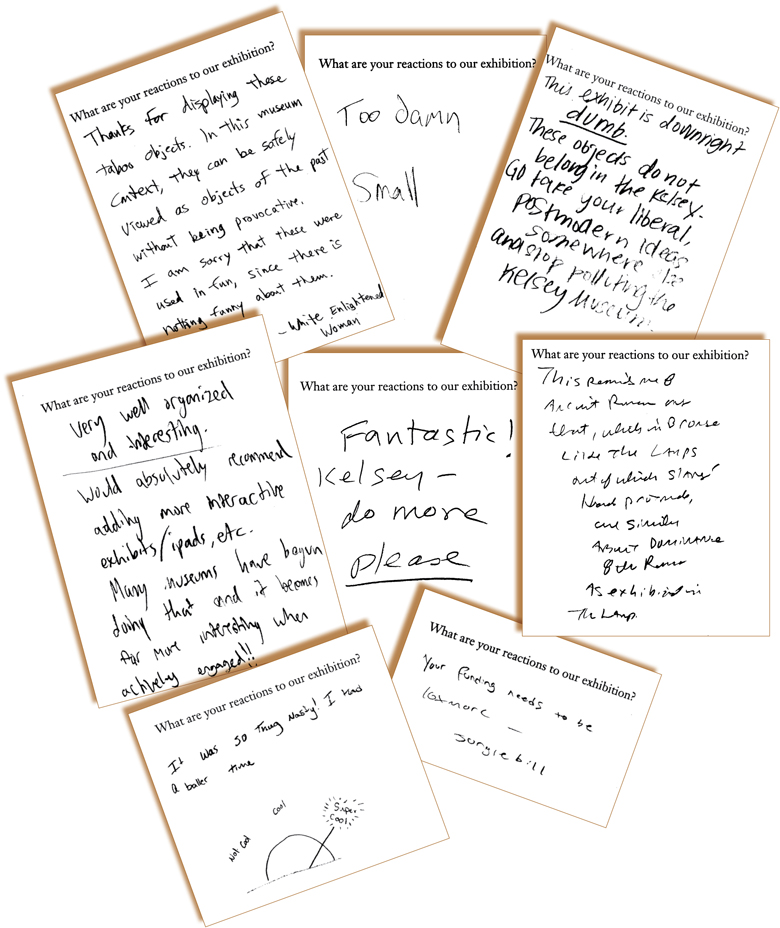 What are your reactions to our exhibition?
Thanks for displaying these
taboo objects. In this museum
context, they can be safely
viewed as objects of the past
without being provocative.
I am sorry that these were
used in fun, since there is
nothing funny about them.
- White Enlightened
Woman
What are your reactions to our exhibition?
Too damn
Small
What are your reactions to our exhibition?
This exhibit is downright
dumb.
These objects do not
belong in the Kelsey.
Go take your liberal,
postmodern ideas
somewhere else
and stop polluting the
Kelsey Museum.
What are your reactions to our exhibition?
Very well organized
and interesting.
Would absolutely recommend
adding more interactive
exhibits/ipads, etc.
Many museums have begun
doing that and it becomes
far more interesting when
actively engaged!!
What are your reactions to our exhibition?
Fantastic!
Kelsey -
do more
please
What are your reactions to our exhibition?
This reminds me of
Ancient Roman
which in
Like The Lamps
out of which
are simply
About Dominance
of the Roman
As exhibited in
The Lamp.
What are your reactions to our exhibition?
Your funding needs to be
10x more -
What are your reactions to our exhibition?
It was so Thug Nasty! I had
a baller time
Not Cool
Cool
Super
Cool